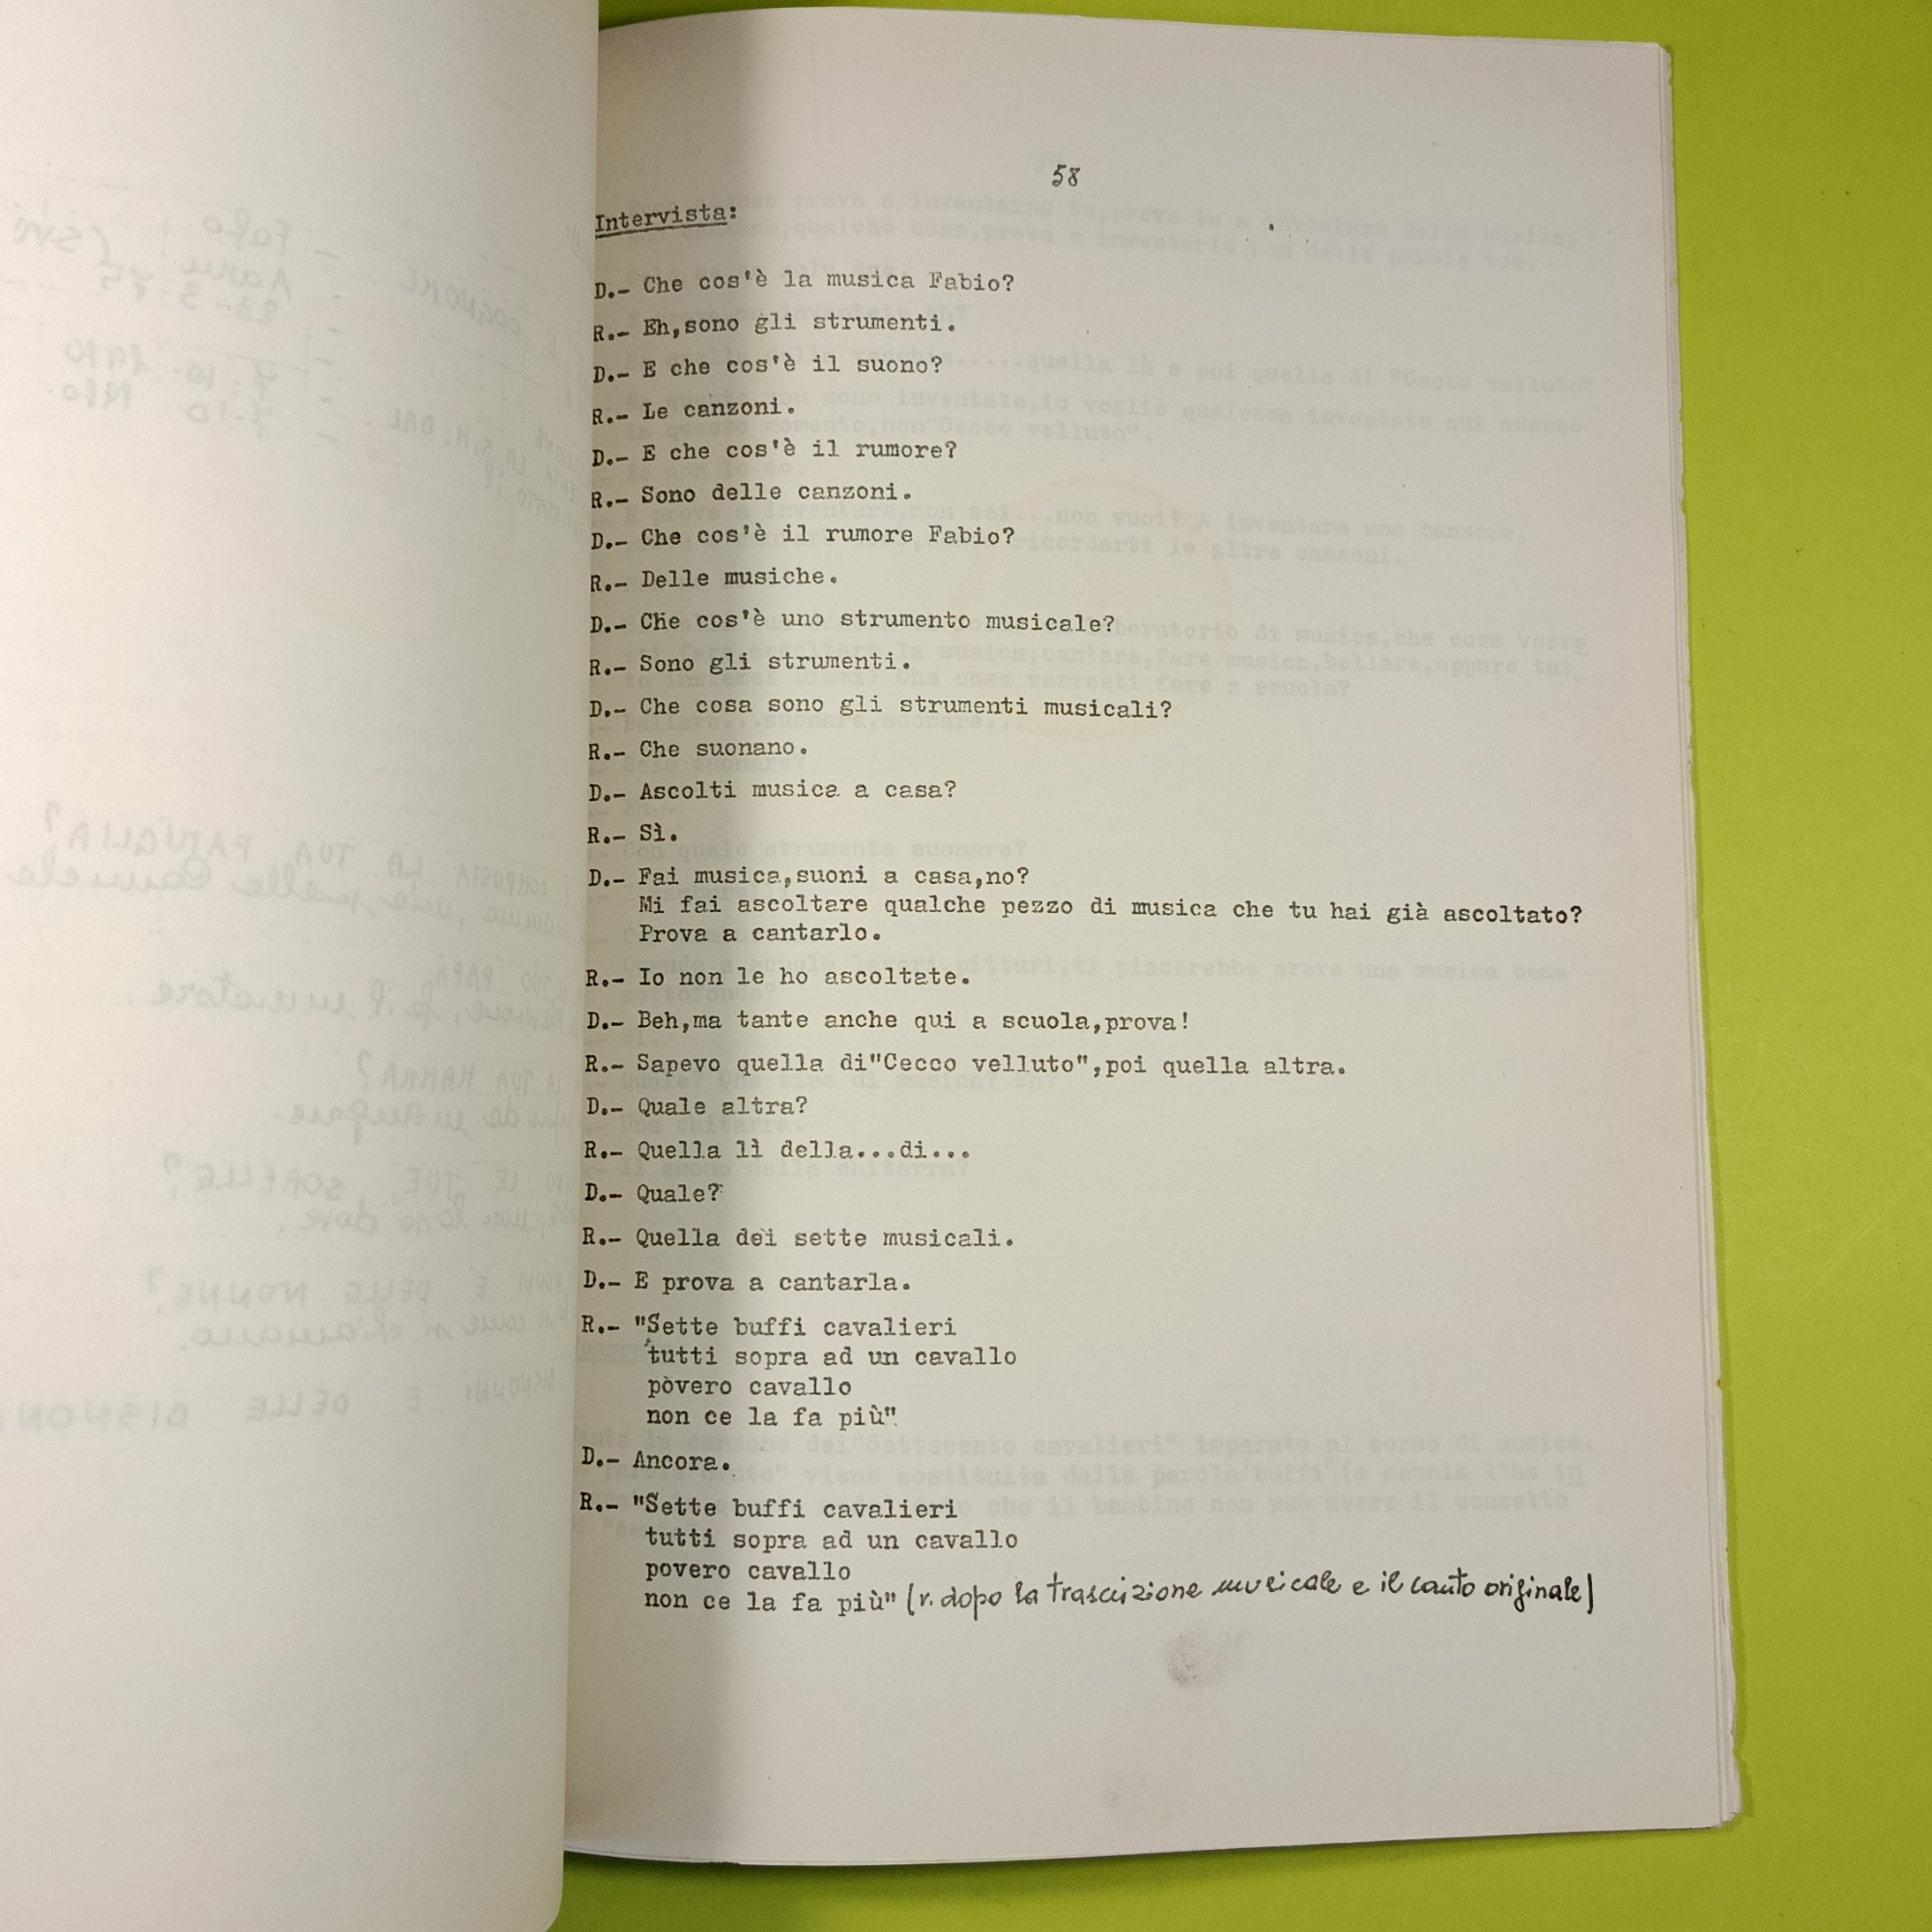 58
Intervista:
D.- Che cos'è la musica Fabio?
R.- Eh,sono gli strumenti.
D.- E che cos'è il suono?
R.- Le canzoni.
D.- E che cos'è il rumore?
R.- Sono delle canzoni.
D.- Che cos'è il rumore Fabio?
R.- Delle musiche.
D.- Che cos'è uno strumento musicale?
R.- Sono gli strumenti.
D.- Che cosa sono gli strumenti musicali?
R.- Che suonano.
D.- Ascolti musica a casa?
R.- Sì.
D.- Fai musica,suoni a casa,no?
Mi fai ascoltare qualche pezzo di musica che tu hai già ascoltato?
Prova a cantarlo.
R.- Io non le ho ascoltate.
D.- Beh,ma tante anche qui a scuola,prova!
R.- Sapevo quella di"Cecco velluto",poi quella altra.
D.- Quale altra?
R.- Quella lì della...di...
D.- Quale?
R.- Quella dei sette musicali.
D.- E prova a cantarla.
R.- "Sette buffi cavalieri
tutti sopra ad un cavallo
pòvero cavallo
non ce la fa più"
D.- Ancora.
R.- "Sette buffi cavalieri
tutti sopra ad un cavallo
povero cavallo
non ce la fa più" (v. dopo la trascrizione musicale e il canto originale)